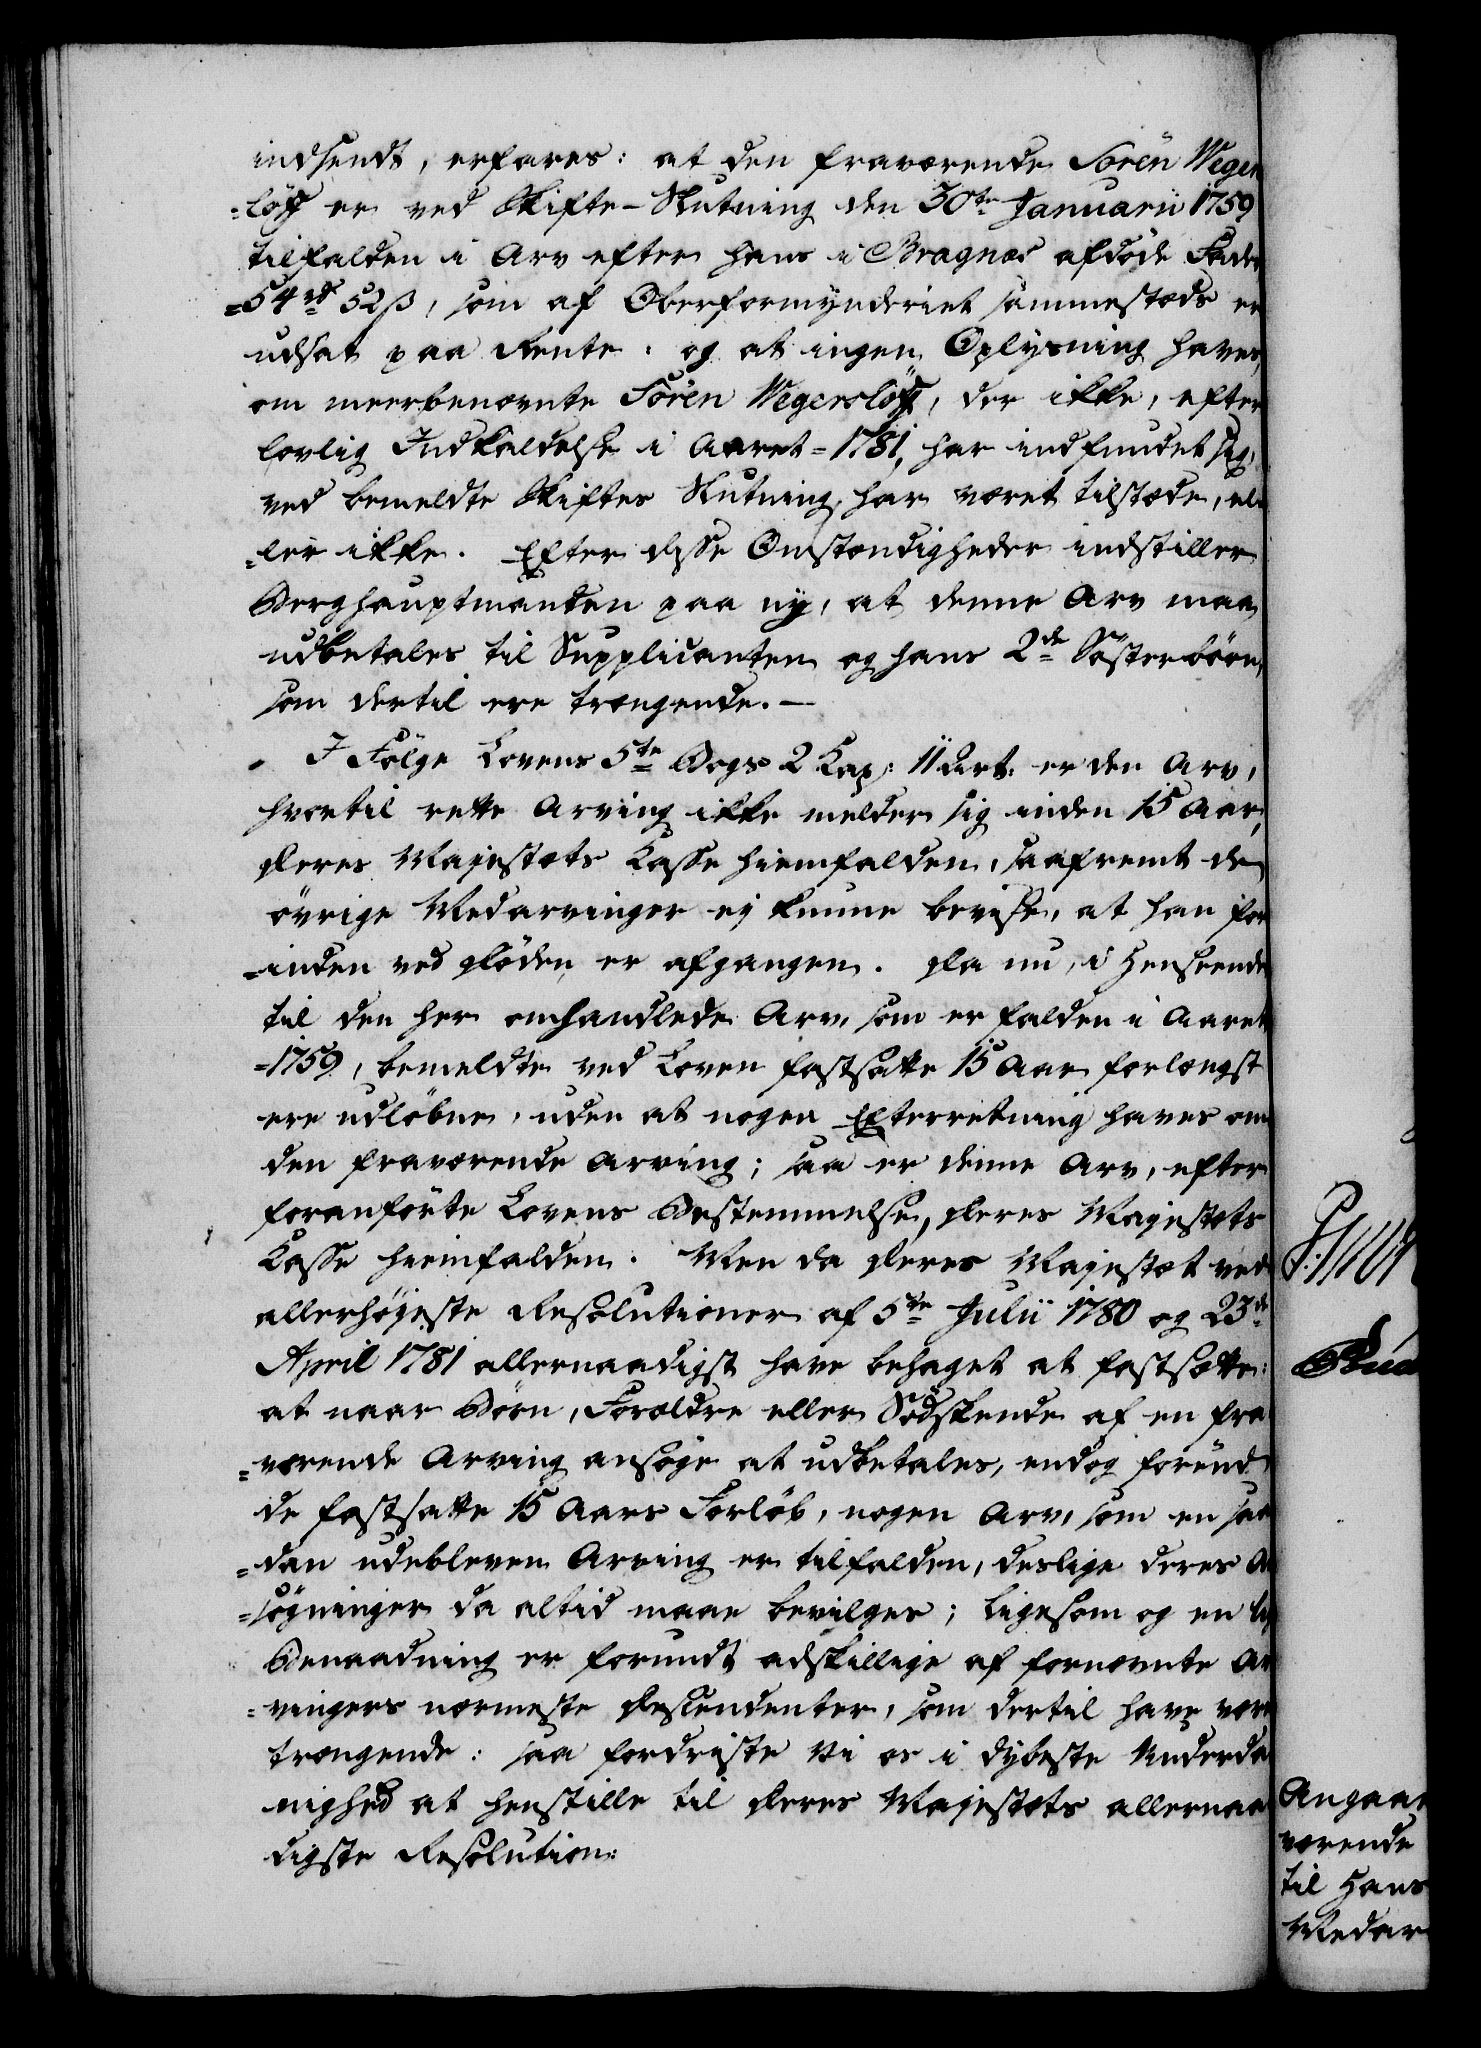 indsendt, erfares: at den fraværende Sören Weger
=löff er ved Skifte-Slutning den 30te Januarii 1759
tilfalden i Arv efter hans i Bragnæs afdöde Fader
=54rd 52ß, som af Oberformynderiet sammestæds er
udsat paa Rente: og at ingen Oplysning haves,
om meerbenævnte Sören Wegerslöff, der ikke, efter
lovlig Indkaldelse i Aaret=1781, har indfundet sig,
ved bemeldte Skiftes Slutning har været tilstæde, el=
=ler ikke. Efter disse Omstændigheder indstiller
Berghauptmanden paa ny, at denne Arv maa
udbetales til Supplicanten og hans 2de Sösterbörn,
som dertil ere trængende.—
I Fölge Lovens 5te Bogs 2 Kap: 11 Art: er den Arv,
hvortil rette Arving ikke melder sig inden 15 Aar,
Deres Majestæts Kasse hiemfalden, saafremt de
övrige Medarvinger ej kunne bevise, at han for
=inden ved Döden er afgangen. Da nu, i Henseende
til den her omhandlede Arv, som er falden i Aaret
=1759, bemeldte ved Loven fastsatte 15 Aar forlængst
ere udlöbne, uden at nogen Efterretning haves om
den fraværende Arving; saa er denne Arv, efter
foranförte Lovens Bestemmelse, Deres Majestæts
Kasse hiemfalden. Men da Deres Majestæt ved
allerhöjeste Resolutioner af 5te Julii 1780 og 23de
April 1781 allernaadigst have behaget at fastsætte:
at naar Börn, Forældre eller Södskende af en fra
=værende Arving ansöge at udbetales, endog forend
de fastsatte 15 Aars Forlöb, nogen Arv, som en saa
=dan udebleven Arving er tilfalden, deslige deres An
=sögninger da altid maae bevilges; ligesom og en lig
Benaadning er forundt adskillige af fornævnte Ar
=vingers nærmeste Descendenter, som dertil have vær
trængende: saa fordriste Vi os i dybeste Underda
nighed at henstille til Deres Majestæts allernaa
digste Resolution:
Angaae
værende
til Hans
Medar